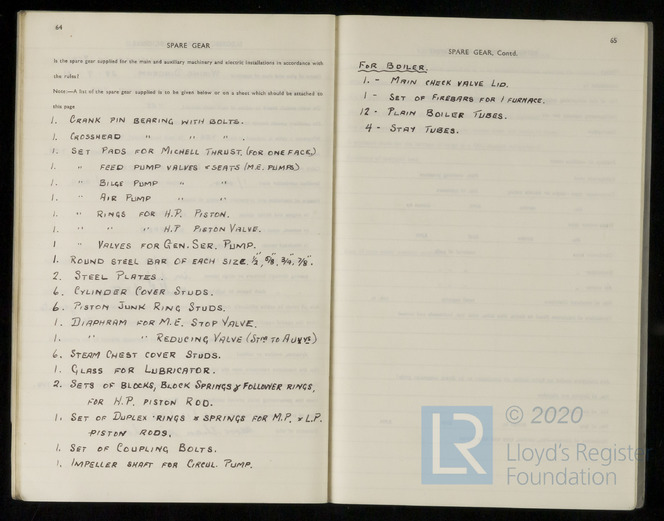 64
SPARE GEAR
Is the spare gear supplied for the main and auxiliary machinery and electric installations in accordance with
the rules?
Note:—A list of the spare gear supplied is to be given below or on a sheet which should be attached to
this page
1. CRANK PIN BEARING WITH BOLTS.
1. CROSSHEAD " " " .
1. SET PADS FOR MICHELL THRUST, (FOR ONE FACE)
1. " FEED PUMP VALVES & SEATS (M.E. PUMPS)
1. " BILGE PUMP " "
1. " AIR PUMP " "
1. " RINGS FOR H.P. PISTON.
1. " " " H.P PISTON VALVE.
1 " VALVES FOR GEN. SER. PUMP.
1. ROUND STEEL BAR OF EACH SIZE. 1/2", 5/8", 3/4", 7/8".
2. STEEL PLATES.
6. CYLINDER COVER STUDS.
6. PISTON JUNK RING STUDS.
1. DIAPHRAM FOR M.E. STOP VALVE.
1. " " REDUCING VALVE (STM TO AUXYS)
6. STEAM CHEST COVER STUDS.
1. GLASS FOR LUBRICATOR.
2. SETS OF BLOCKS, BLOCK SPRINGS & FOLLOWER RINGS,
FOR H.P. PISTON ROD.
1. SET OF DUPLEX RINGS & SPRINGS FOR M.P. & L.P.
PISTON RODS.
1. SET OF COUPLING BOLTS.
1. IMPELLER SHAFT FOR CIRCUL. PUMP.
65
SPARE GEAR, Contd.
FOR BOILER.
1. - MAIN CHECK VALVE LID.
1 - SET OF FIREBARS FOR 1 FURNACE.
12 - PLAIN BOILER TUBES.
4 - STAY TUBES.
LR
© 2020
Lloyd's Register
Foundation